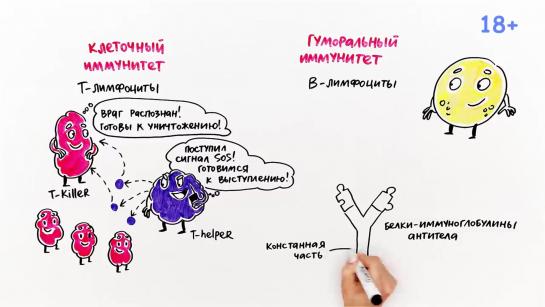 18+
КЛЕТОЧНЫЙ
ИММУНИТЕТ
Т-ЛИМФОЦИТЫ
ВРАГ РАСПОЗНАН!
ГОТОВЫ К УНИЧТОЖЕНИЮ!
ПОСТУПИЛ
СИГНАЛ SOS!
ГОТОВИМСЯ
К ВЫСТУПЛЕНИЮ!
T-Killer
T-helper
ГУМОРАЛЬНЫЙ
ИММУНИТЕТ
В-ЛИМФОЦИТЫ
БЕЛКИ-ИММУНОГЛОБУЛИНЫ
АНТИТЕЛА
КОНСТАННАЯ
ЧАСТЬ